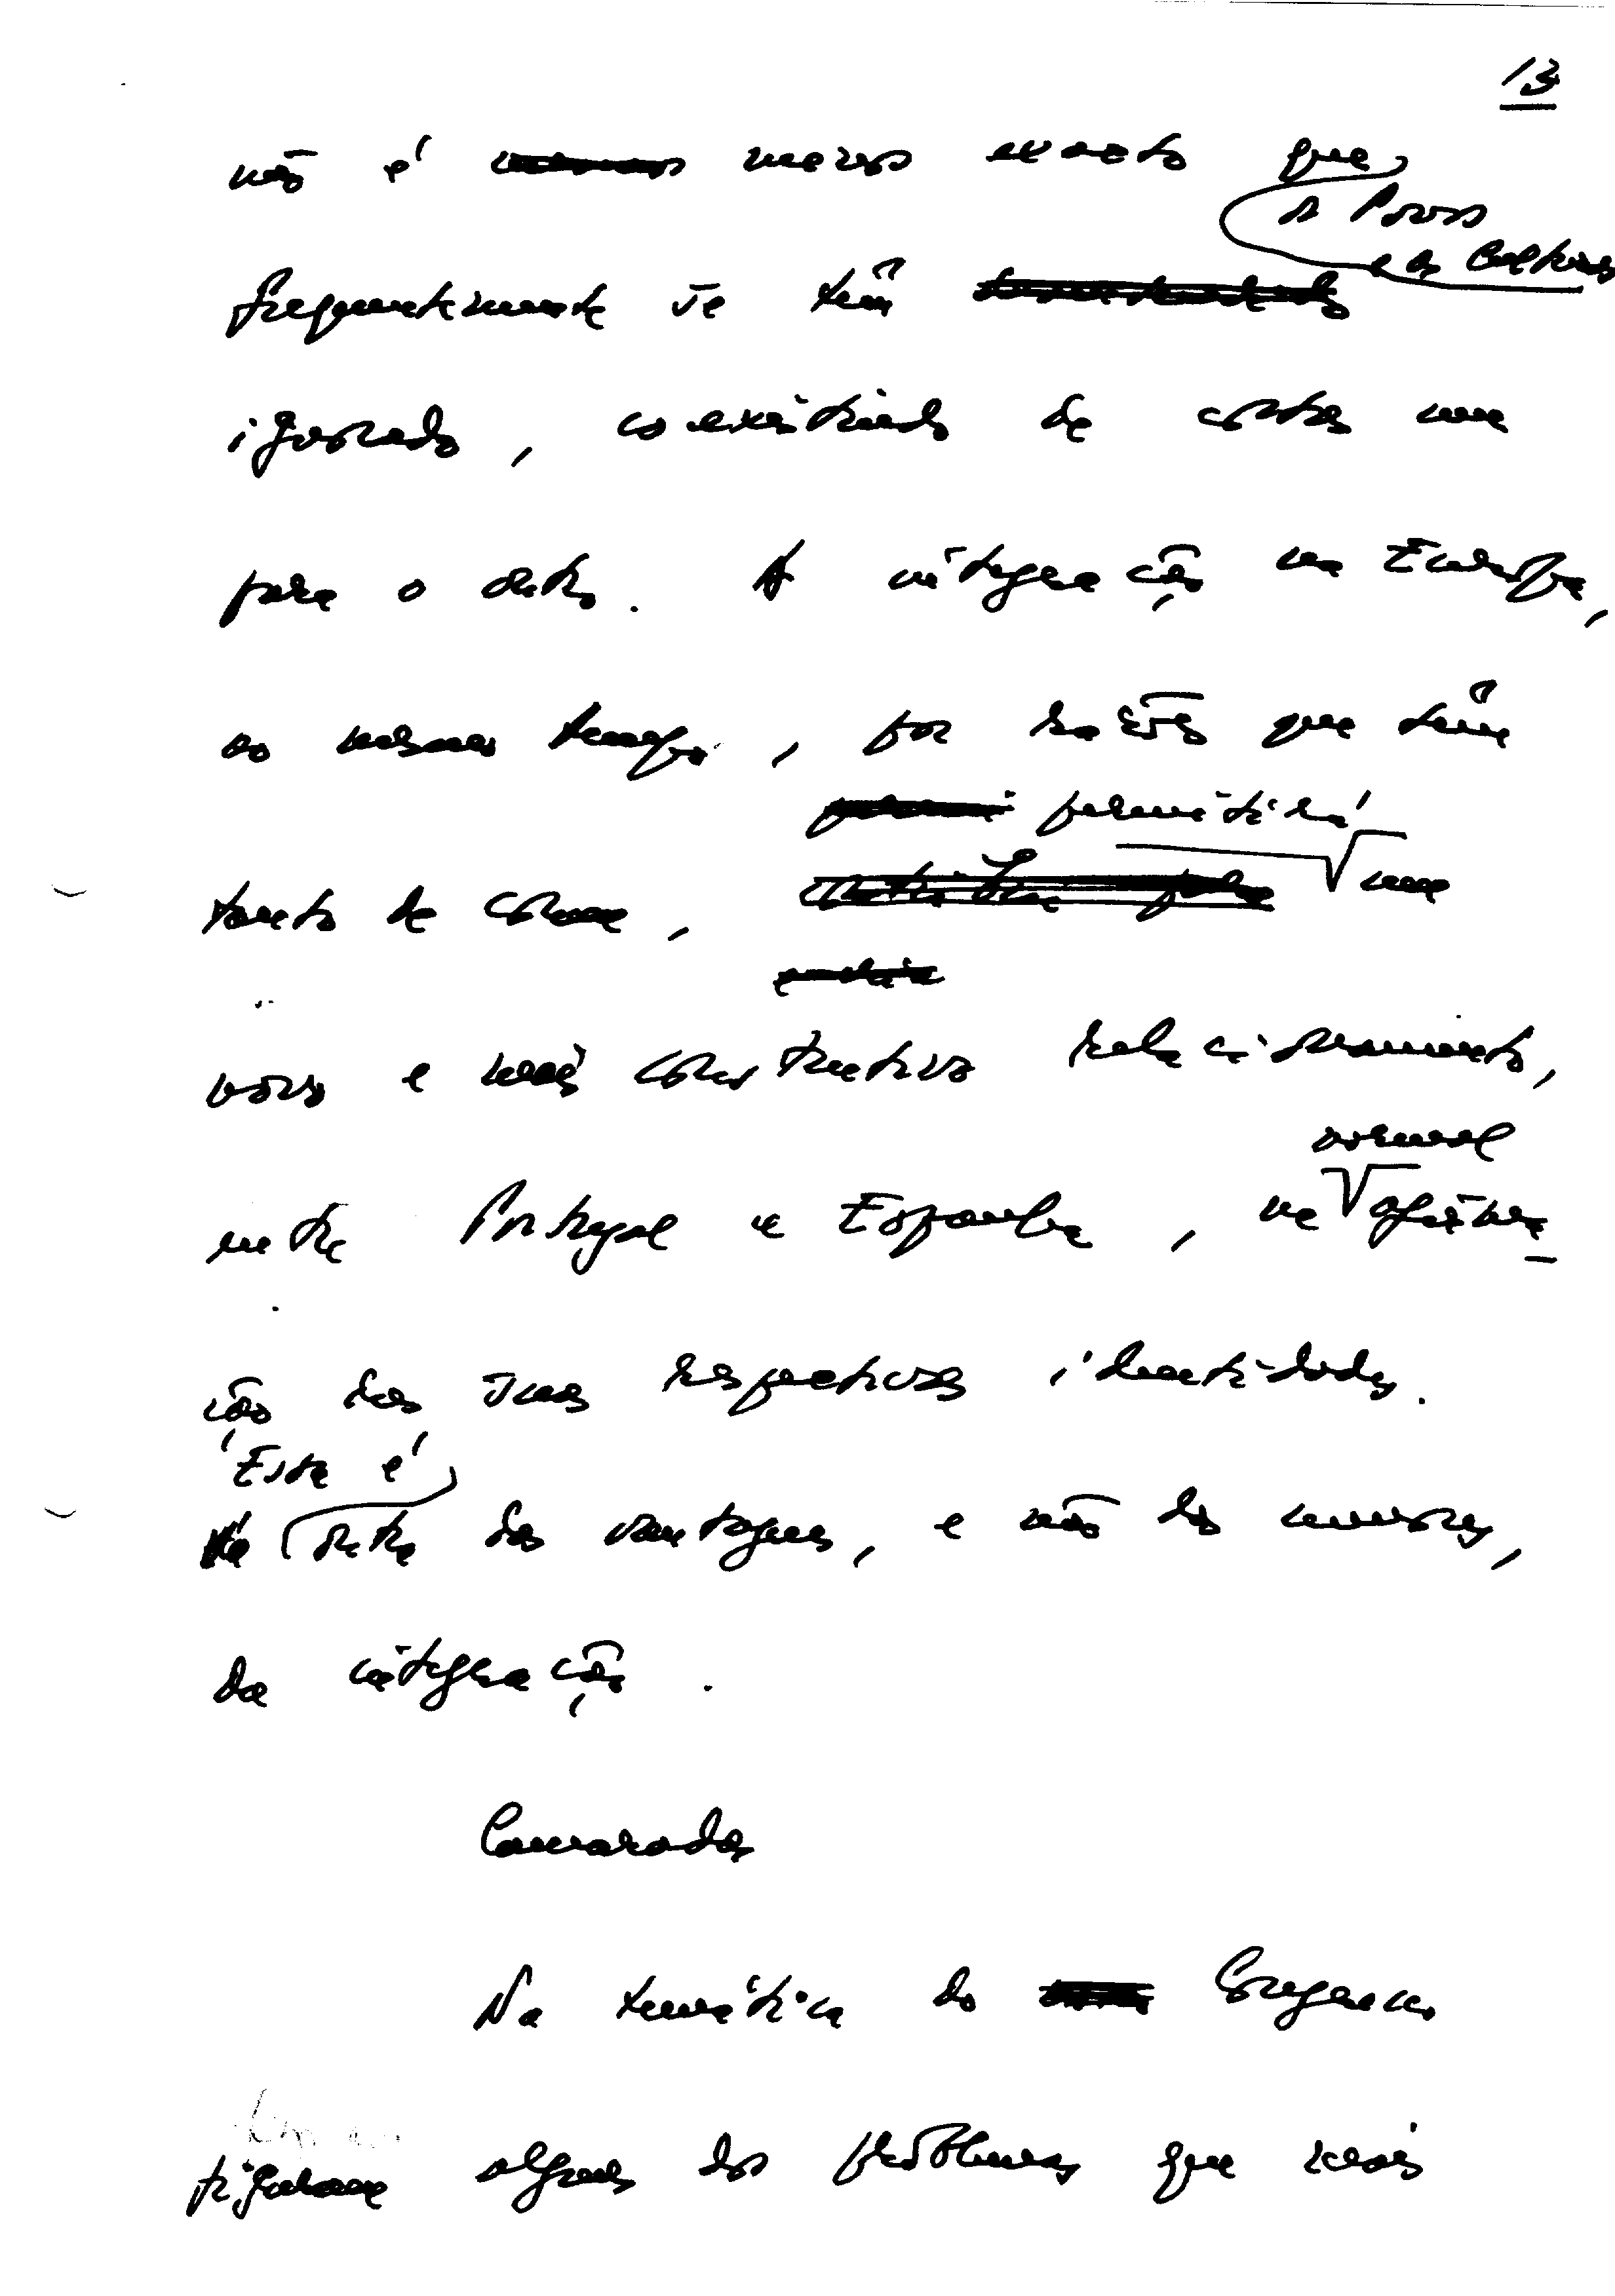 13
não é menos exacto que
os Povos
e as Culturas
frequentemente se têm
ignorado, coexistindo de costas um
para o outro. A integração na Europa,
ao mesmo tempo, por razões que têm
permitirá
tanto de comum, um
novo e mais construtivo relacionamento,
normal
entre Portugal e Espanha, na afirma-
ção das suas respectivas identidades.
Esta é
outra das vantagens, e não das menores,
da integração.
Camaradas
Na temática do Congresso
figuram alguns dos problemas que mais